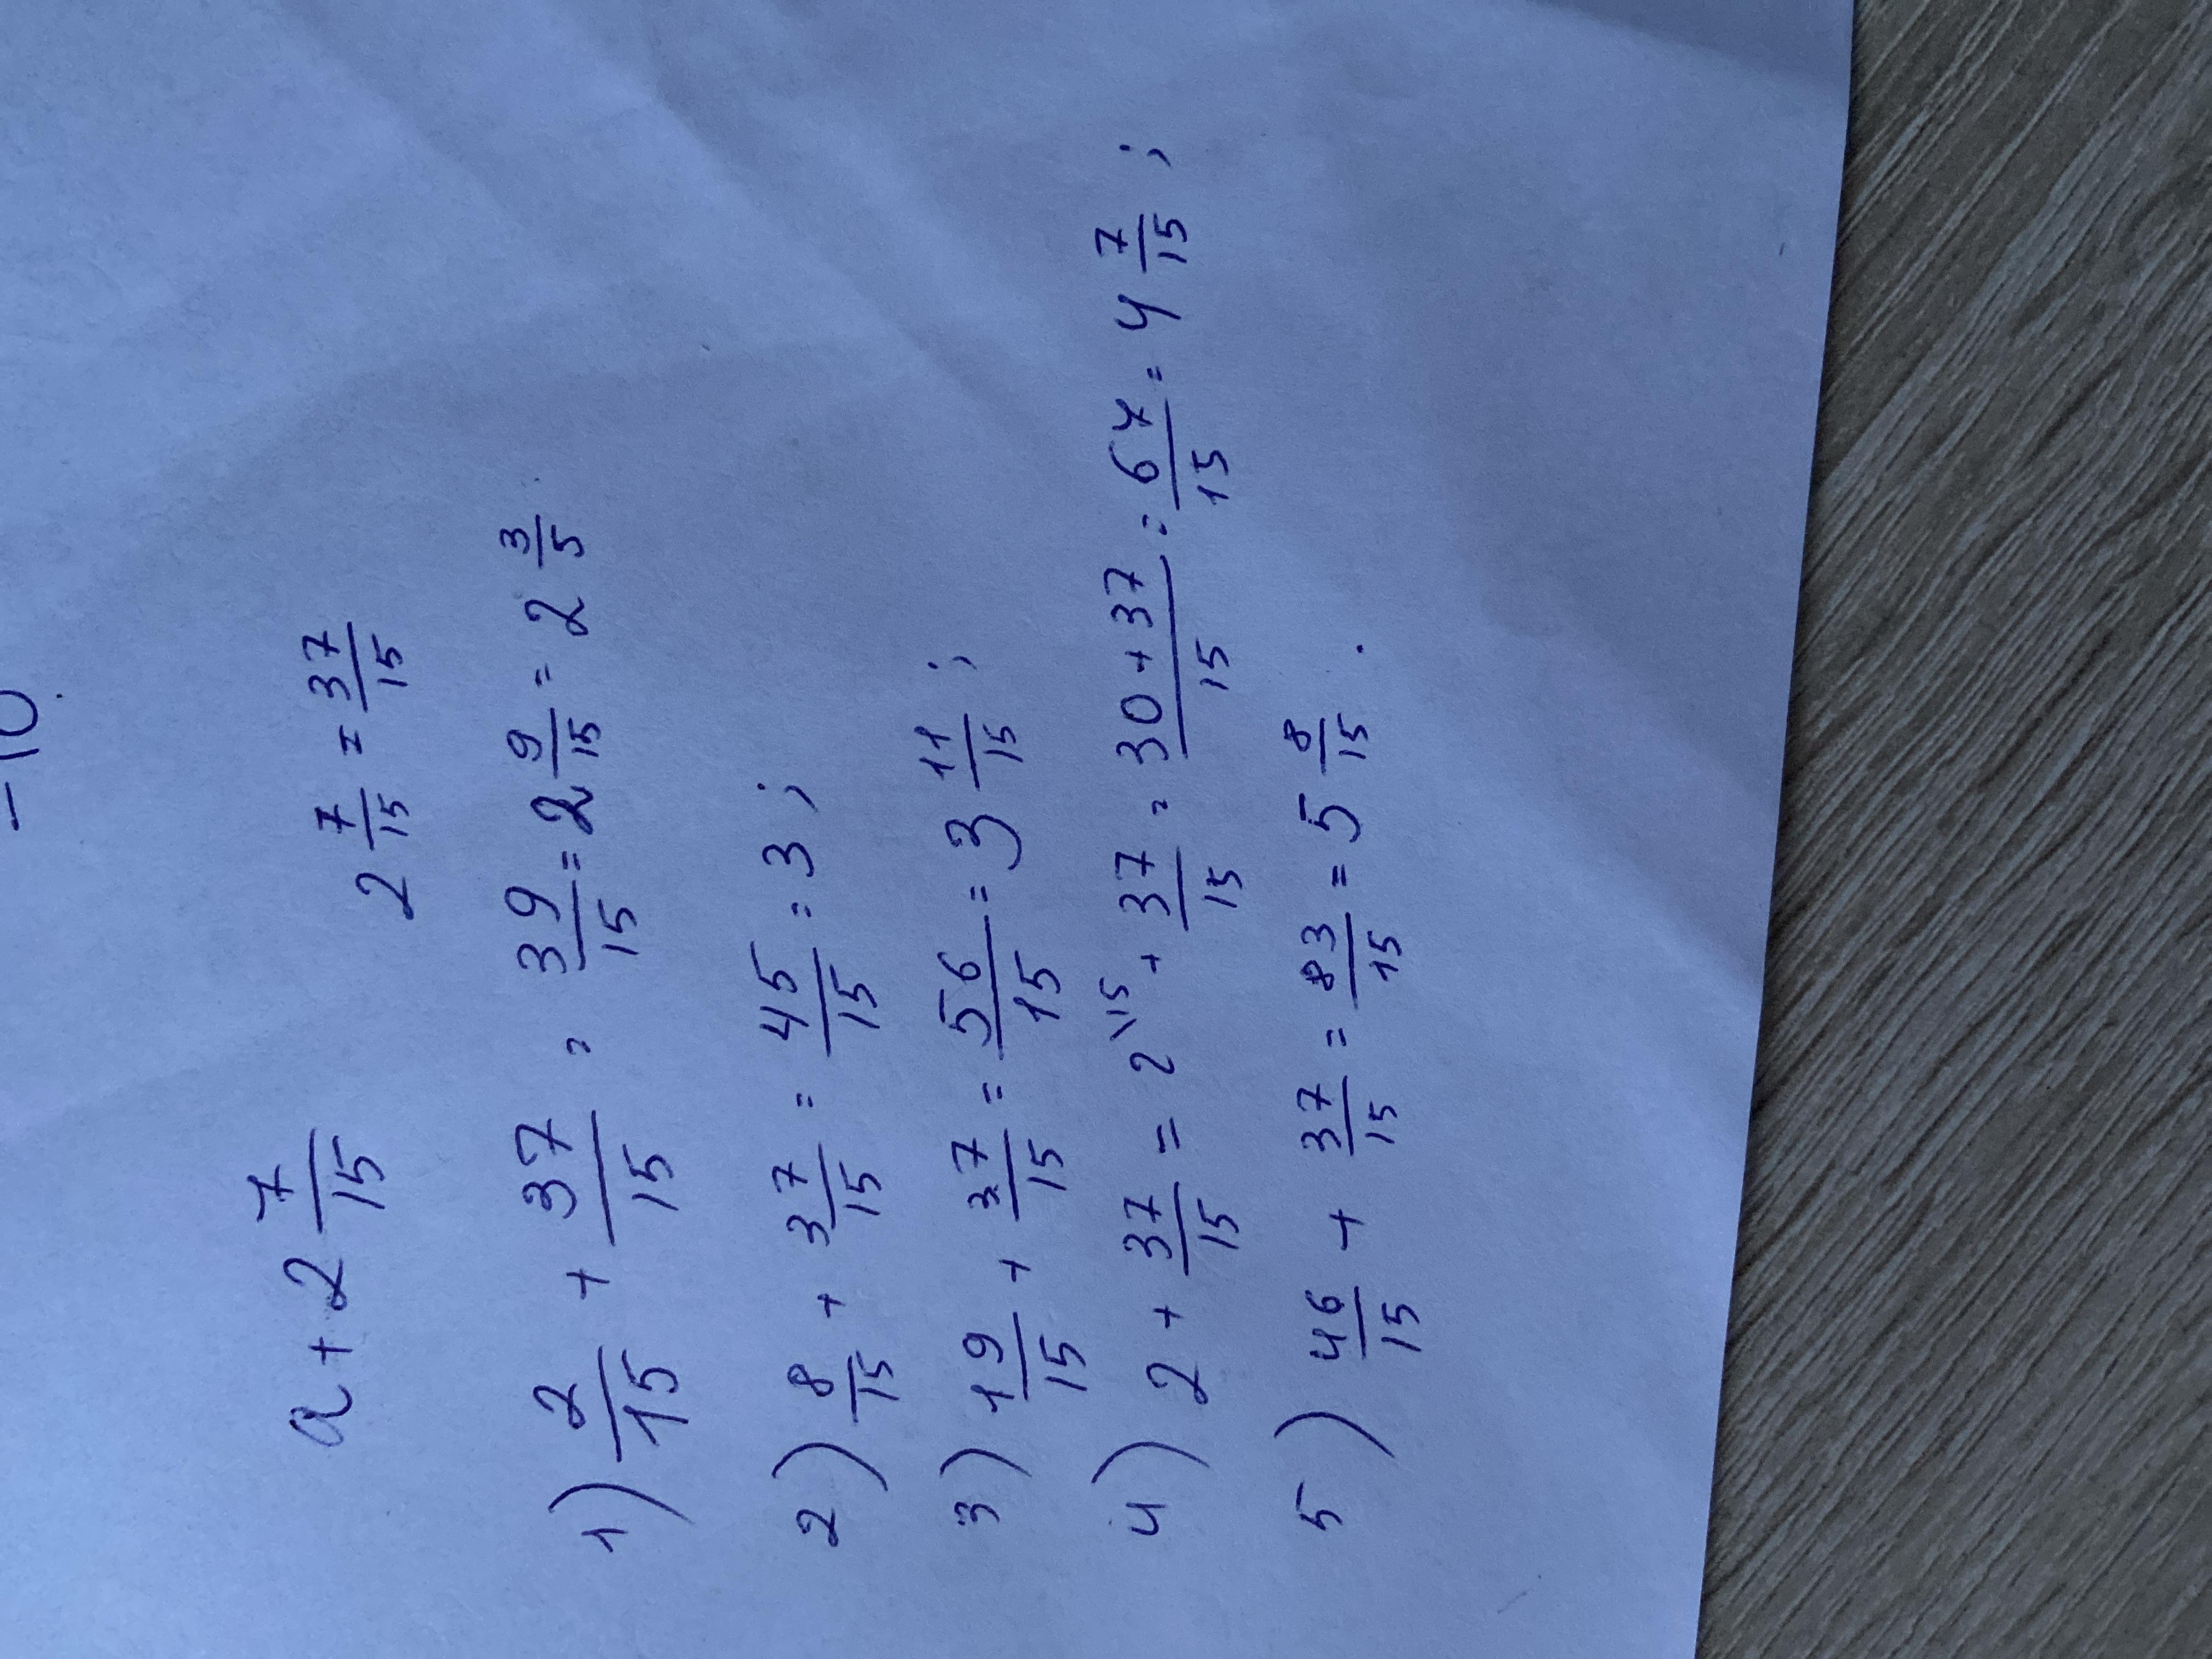 -10
a + 2 7/15    2 7/15 = 37/15
1) 2/15 + 37/15 = 39/15 = 2 9/15 = 2 3/5
2) 8/15 + 37/15 = 45/15 = 3;
3) 19/15 + 37/15 = 56/15 = 3 11/15;
4) 2 + 37/15 = 2\15 + 37/15 = 30+37/15 = 67/15 = 4 7/15;
5) 46/15 + 37/15 = 83/15 = 5 8/15.